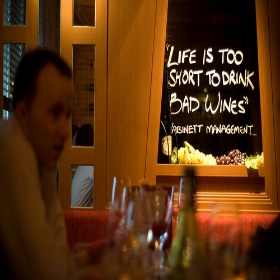 "LIFE IS TOO
SHORT TO DRINK
BAD WINES"
KABINETT MANAGEMENT